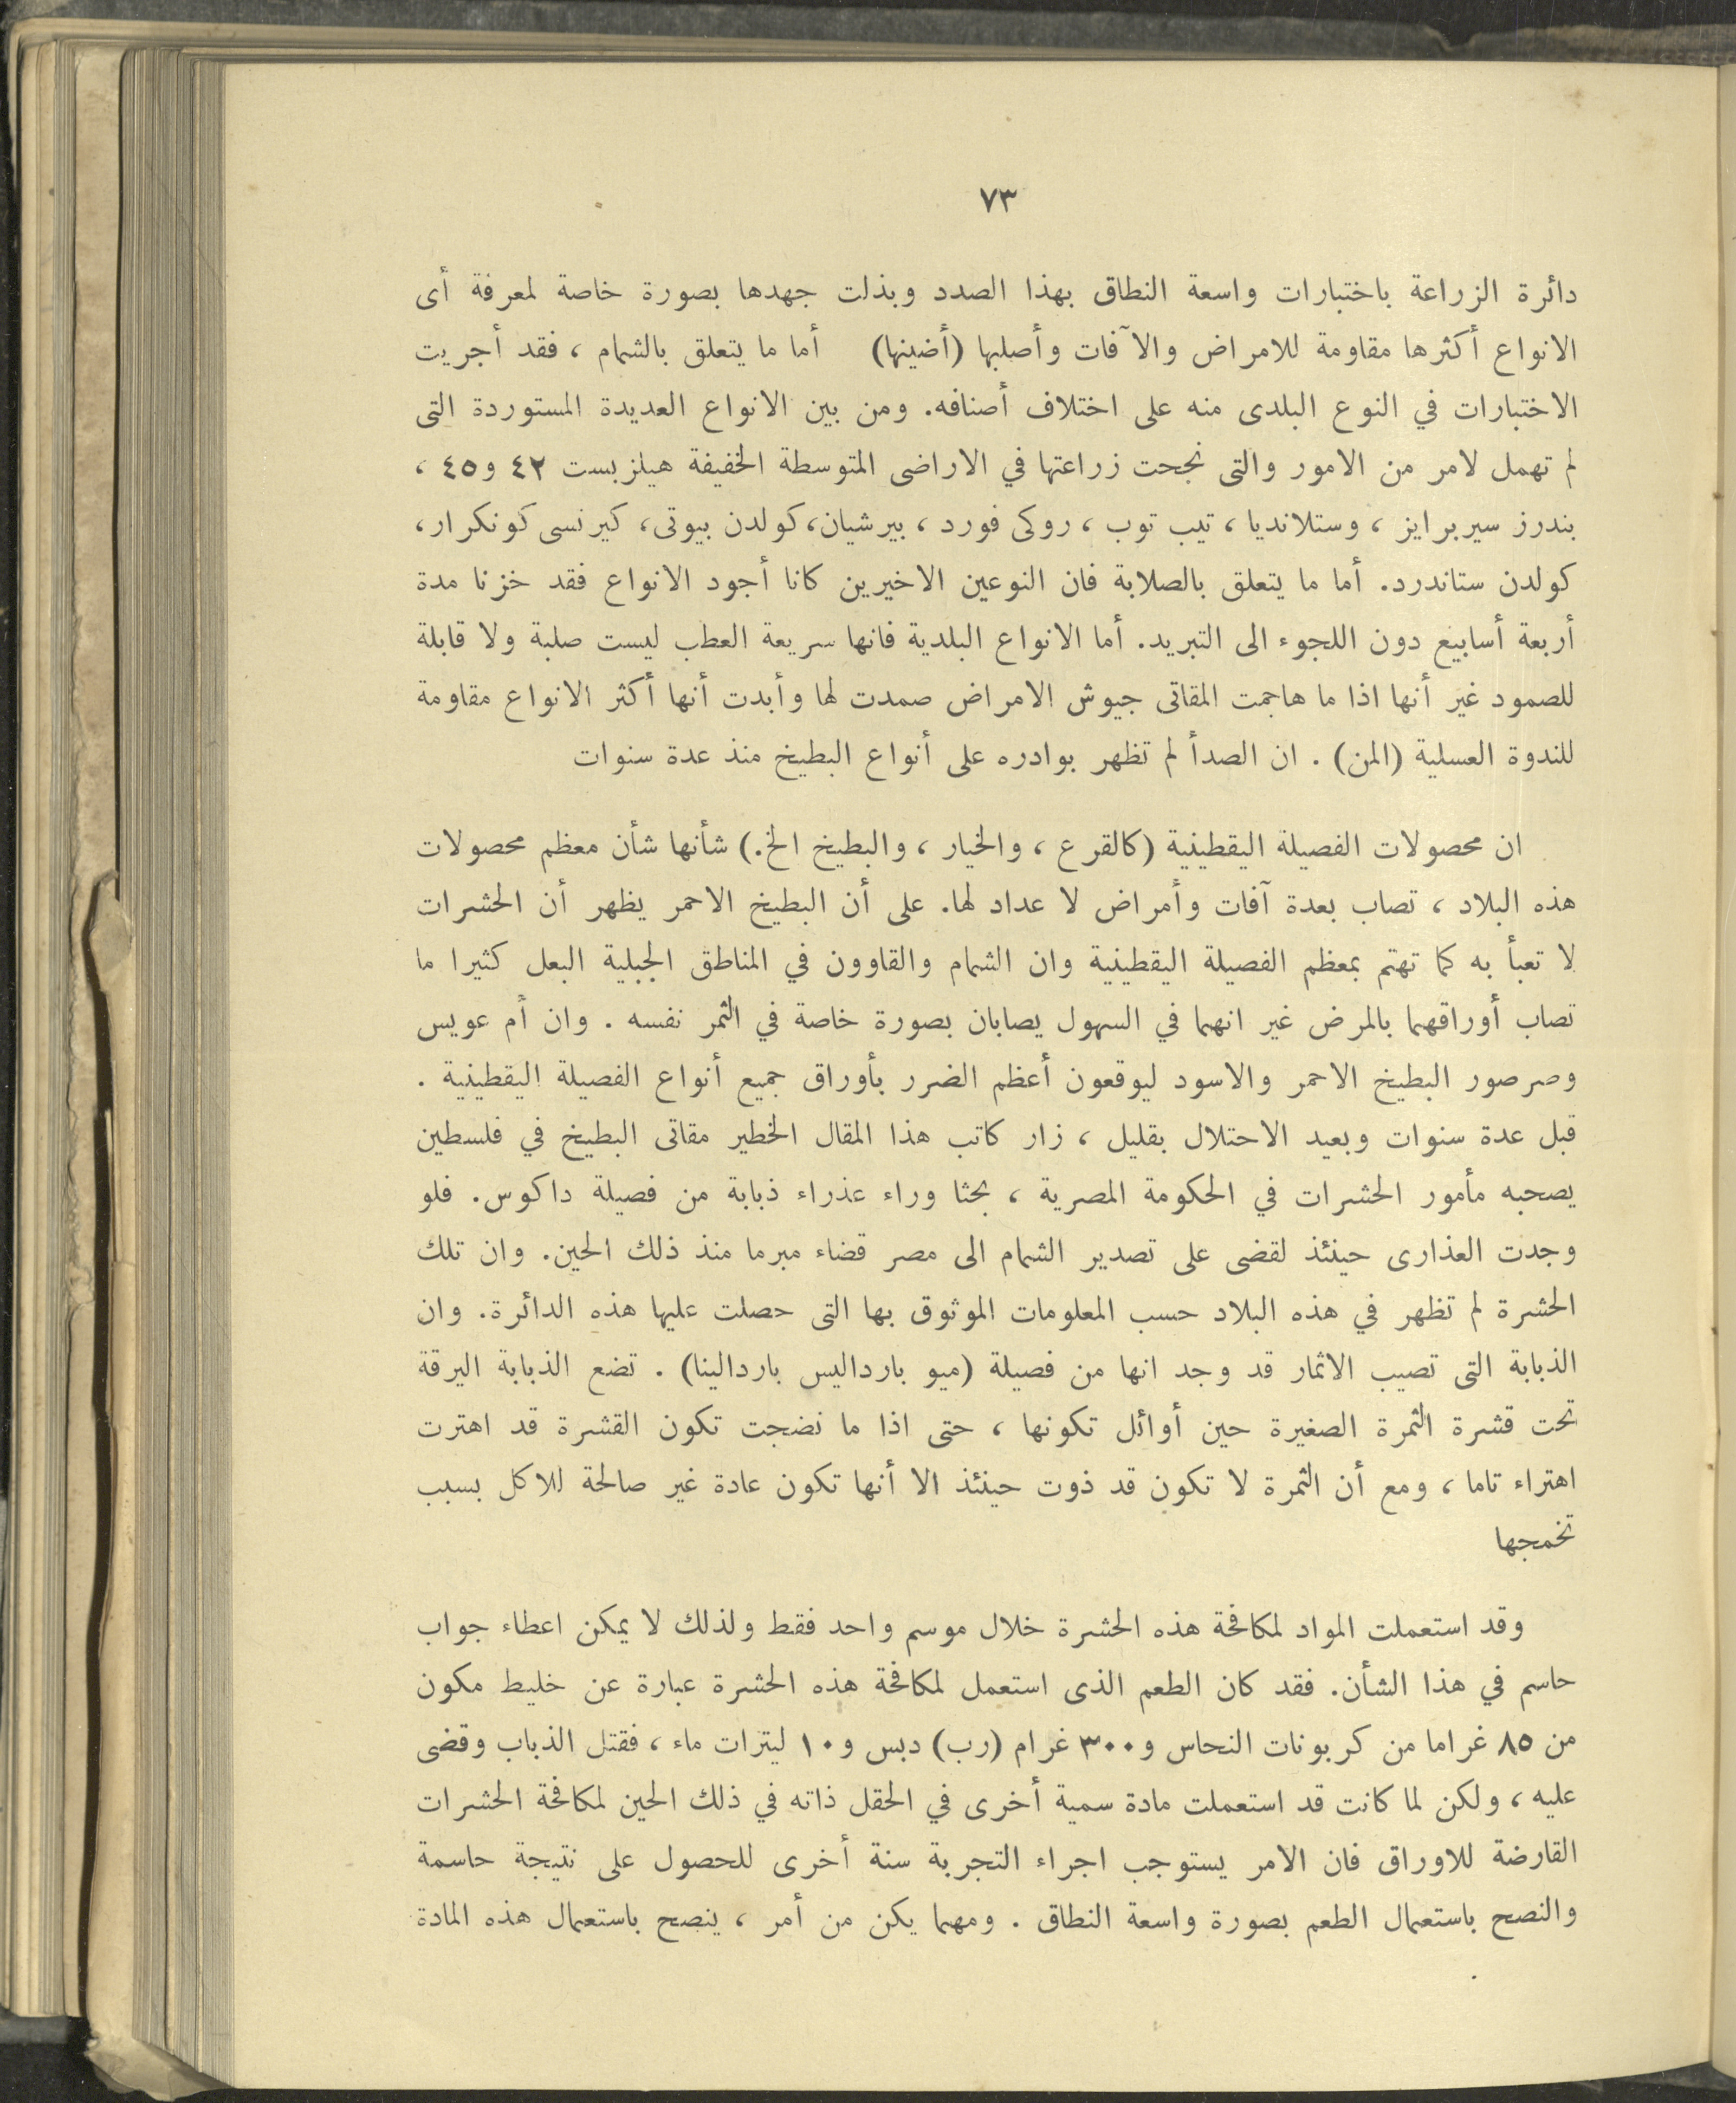 ٧٣
دائرة الزراعة باختبارات واسعة النطاق بهذا الصدد وبذلت جهدها بصورة خاصة لمعرفة أى
الانواع أكثرها مقاومة للامراض والآفات وأصلبها (أضينها) أما ما يتعلق بالشمام ، فقد أجريت
الاختبارات في النوع البلدى منه على اختلاف أصنافه. ومن بين الانواع العديدة المستوردة التى
لم تهمل لامر من الامور والتى نجحت زراعتها في الاراضى المتوسطة الخفيفة هيلزبست ٤٢ و٤٥ ،
بندرز سيربرايز ، وستلانديا ، تيب توب ، روكى فورد ، بيرشيان، كولدن بيوتى، كيرنسى كونكرار،
كولدن ستاندرد. أما ما يتعلق بالصلابة فان النوعين الاخيرين كانا أجود الانواع فقد خزنا مدة
أربعة أسابيع دون اللجوء الى التبريد. أما الانواع البلدية فانها سريعة العطب ليست صلبة ولا قابلة
للصمود غير أنها اذا ما هاجمت المقاتى جيوش الامراض صمدت لها وأبدت أنها أكثر الانواع مقاومة
للندوة العسلية (المن) . ان الصدأ لم تظهر بوادره على أنواع البطيخ منذ عدة سنوات
ان محصولات الفصيلة اليقطينية (كالقرع ، والخيار ، والبطيخ الخ.) شأنها شأن معظم محصولات
هذه البلاد ، تصاب بعدة آفات وأمراض لا عداد لها. على أن البطيخ الاحمر يظهر أن الحشرات
لا تعبأ به كما تهتم بمعظم الفصيلة اليقطينية وان الشمام والقاوون في المناطق الجبلية البعل كثيرا ما
تصاب أوراقهما بالمرض غير انهما في السهول يصابان بصورة خاصة في الثمر نفسه . وان أم عويس
وصرصور البطيخ الاحمر والاسود ليوقعون أعظم الضرر بأوراق جميع أنواع الفصيلة اليقطينية .
قبل عدة سنوات وبعيد الاحتلال بقليل ، زار كاتب هذا المقال الخطير مقاتى البطيخ في فلسطين
يصحبه مأمور الحشرات في الحكومة المصرية ، بحثا وراء عذراء ذبابة من فصيلة داكوس. فلو
وجدت العذارى حينئذ لقضى على تصدير الشمام الى مصر قضاء مبرما منذ ذلك الحين. وان تلك
الحشرة لم تظهر في هذه البلاد حسب المعلومات الموثوق بها التى حصلت عليها هذه الدائرة. وان
الذبابة التى تصيب الاثمار قد وجد انها من فصيلة (ميو بارداليس باردالينا) . تضع الذبابة اليرقة
تحت قشرة الثمرة الصغيرة حين أوائل تكونها ، حتى اذا ما نضجت تكون القشرة قد اهترت
اهتراء تاما ، ومع أن الثمرة لا تكون قد ذوت حينئذ الا أنها تكون عادة غير صالحة للاكل بسبب
تخمجها
وقد استعملت المواد لمكافحة هذه الحشرة خلال موسم واحد فقط ولذلك لا يمكن اعطاء جواب
حاسم في هذا الشأن. فقد كان الطعم الذى استعمل لمكافحة هذه الحشرة عبارة عن خليط مكون
من ٨٥ غراما من كربونات النحاس و٣٠٠ غرام (رب) دبس و١٠ ليترات ماء ، فقتل الذباب وقضى
عليه ، ولكن لما كانت قد استعملت مادة سمية أخرى في الحقل ذاته في ذلك الحين لمكافحة الحشرات
القارضة للاوراق فان الامر يستوجب اجراء التجربة سنة أخرى للحصول على نتيجة حاسمة
والنصح باستعمال الطعم بصورة واسعة النطاق . ومهما يكن من أمر ، ينصح باستعمال هذه المادة